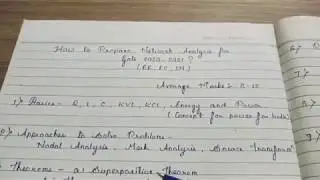 How to Prepare Network Analysis for
Gate 2020-2021 ?
(EE, EC, IN)
Average Marks 8-10
1) Basics - R, L, C, KVL, KCL, Energy and Power
(Concept for power for
2) Approaches to Solve Problems -
Nodal Analysis, Mesh Analysis, Source Transform
Theorems - a) Superposition Theorem